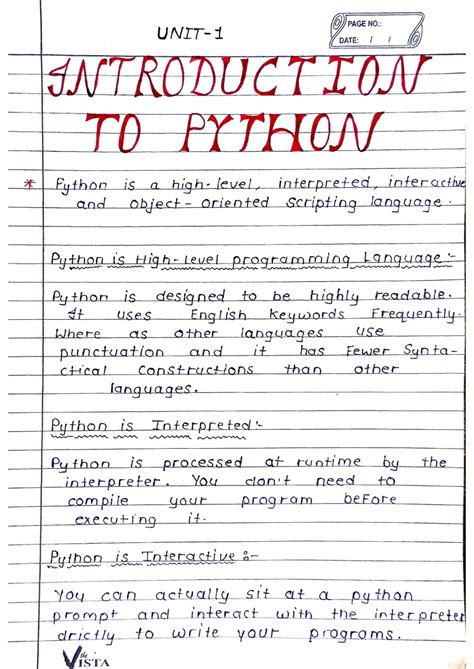 UNIT-1
PAGE NO.:
DATE: / /
INTRODUCTION
TO PYTHON
* Python is a high-level, interpreted, interactive
and object-oriented Scripting language.
Python is High-level programming Language:-
Python is designed to be highly readable.
It uses English Keywords Frequently.
Where as other languages use
punctuation and it has Fewer Synta-
ctical Constructions than other
languages.
Python is Interpreted:-
Python is processed at runtime by the
interpreter. You don't need to
compile your program beFore
executing it.
Python is Interactive :-
You can actually sit at a python
prompt and interact with the interpreter
drictly to write your programs.
the
VISTA